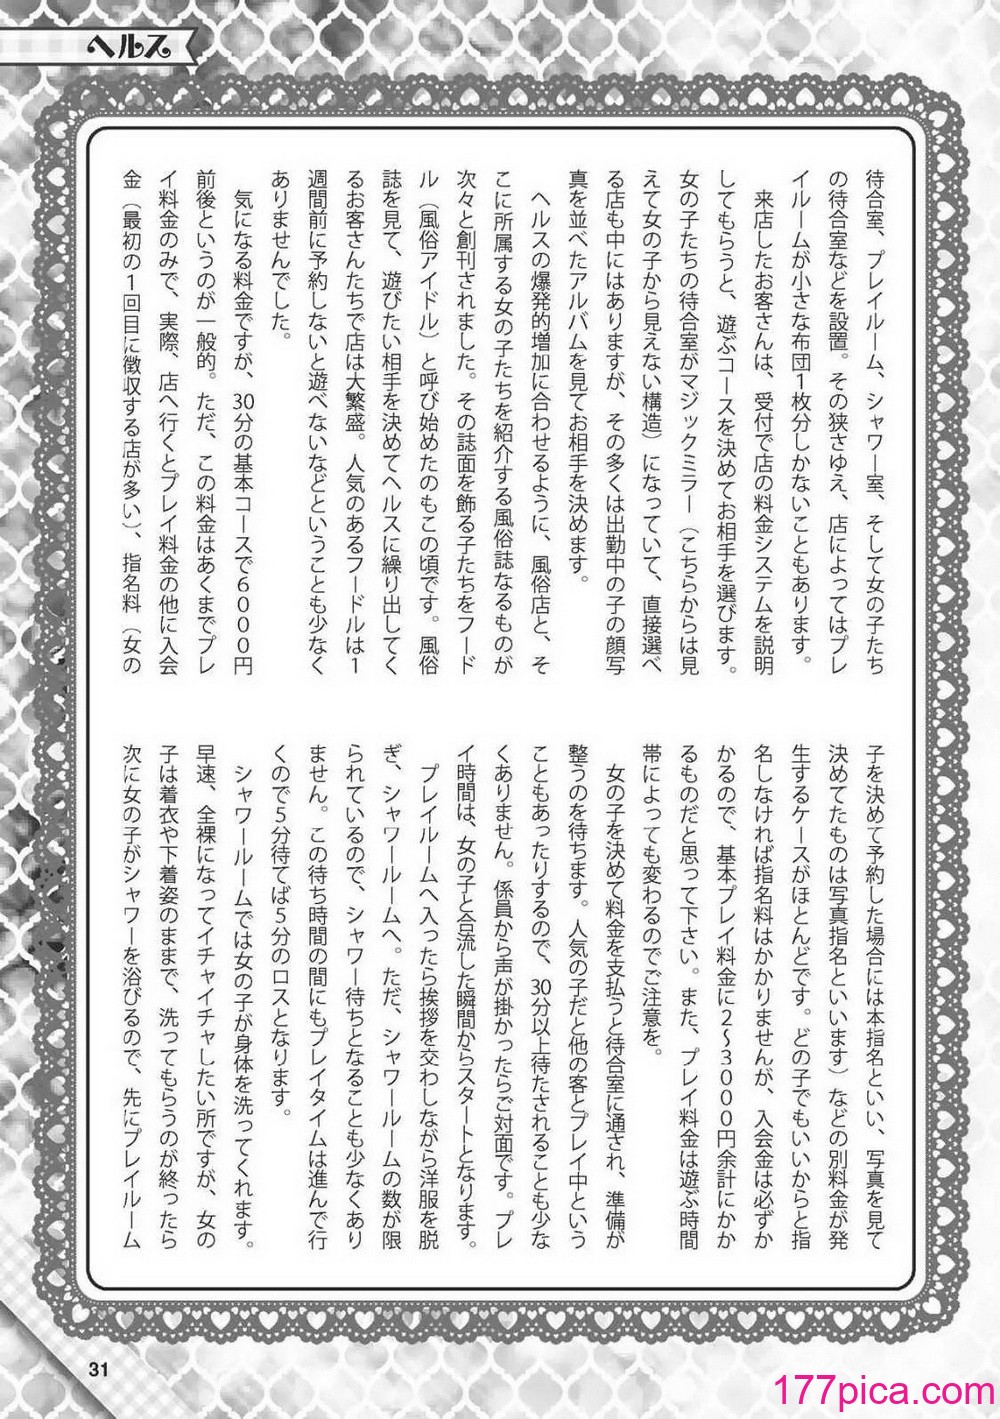 ヘルス
待合室、プレイルーム、シャワー室、そして女の子たち
の待合室などを設置。その狭さゆえ、店によってはプレ
イルームが小さな布団1枚分しかないこともあります。
来店したお客さんは、受付で店の料金システムを説明
してもらうと、遊ぶコースを決めてお相手を選びます。
女の子たちの待合室がマジックミラー（こちらからは見
えて女の子から見えない構造）になっていて、直接選べ
る店も中にはありますが、その多くは出勤中の子の顔写
真を並べたアルバムを見てお相手を決めます。
ヘルスの爆発的増加に合わせるように、風俗店と、そ
こに所属する女の子たちを紹介する風俗誌なるものが
次々と創刊されました。その誌面を飾る子たちをフード
ル（風俗アイドル）と呼び始めたのもこの頃です。風俗
誌を見て、遊びたい相手を決めてヘルスに繰り出してく
るお客さんたちで店は大繁盛。人気のあるフードルは1
週間前に予約しないと遊べないなどということも少なく
ありませんでした。
気になる料金ですが、30分の基本コースで6000円
前後というのが一般的。ただ、この料金はあくまでプレ
イ料金のみで、実際、店へ行くとプレイ料金の他に入会
金（最初の1回目に徴収する店が多い）、指名料（女の
子を決めて予約した場合には本指名といい、写真を見て
決めてたものは写真指名といいます）などの別料金が発
生するケースがほとんどです。どの子でもいいからと指
名しなければ指名料はかかりませんが、入会金は必ずか
かるので、基本プレイ料金に2〜3000円余計にかか
るものだと思って下さい。また、プレイ料金は遊ぶ時間
帯によっても変わるのでご注意を。
女の子を決めて料金を支払うと待合室に通され、準備が
整うのを待ちます。人気の子だと他の客とプレイ中という
こともあったりするので、30分以上待たされることも少な
くありません。係員から声が掛かったらご対面です。プレ
イ時間は、女の子と合流した瞬間からスタートとなります。
プレイルームへ入ったら挨拶を交わしながら洋服を脱
ぎ、シャワールームへ。ただ、シャワールームの数が限
られているので、シャワー待ちとなることも少なくあり
ません。この待ち時間の間にもプレイタイムは進んで行
くので5分待てば5分のロスとなります。
シャワールームでは女の子が身体を洗ってくれます。
早速、全裸になってイチャイチャしたい所ですが、女の
子は着衣や下着姿のままで、洗ってもらうのが終ったら
次に女の子がシャワーを浴びるので、先にプレイルーム
31
177pica.com